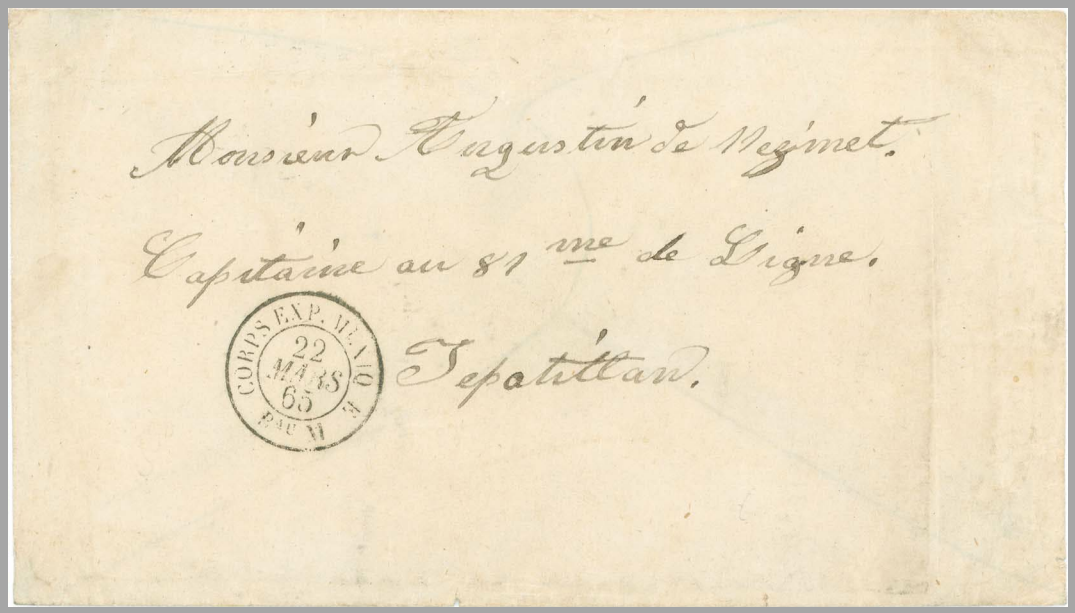 Monsieur Augustin de Nezimet.
Capitaine au 81 me de Ligne.
Tepatitlan.
CORPS EXP. MEXIQUE
22
MARS
65
Bau M